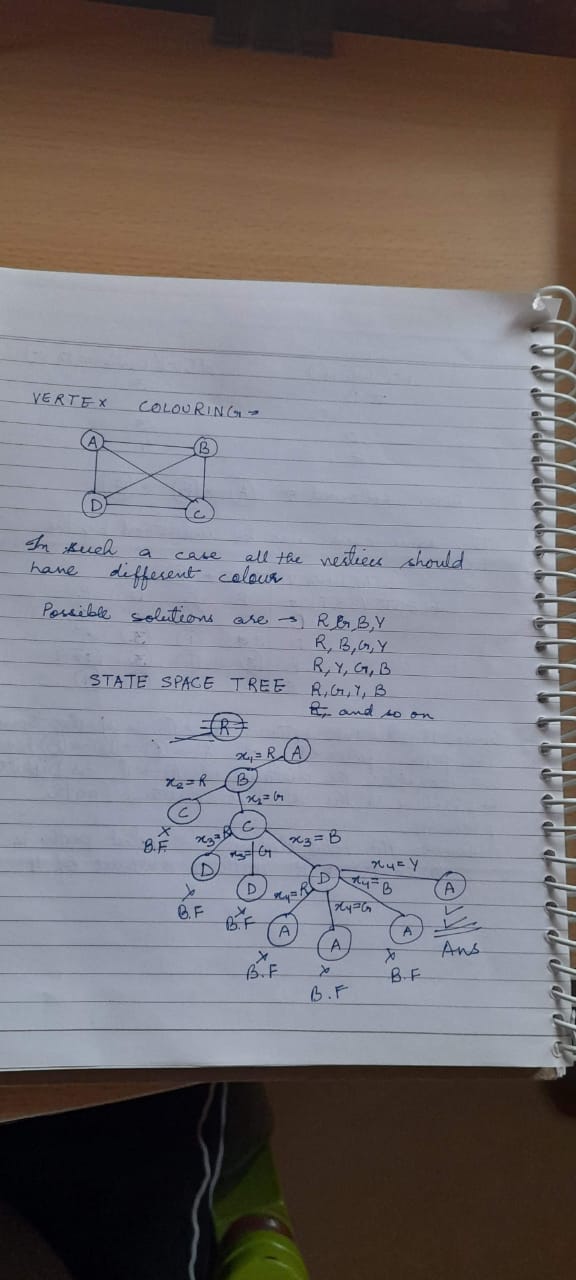 VERTEX COLOURING →
A B
D C
In such a case all the vertices should
have different colour
Possible solutions are → R, G, B, Y
R, B, G, Y
R, Y, G, B
STATE SPACE TREE R, G, Y, B
and so on
R
x₁=R A
x₂=R B
x₂=G
C
C
x B.F
x₃=R x₃=G x₃=B
D D D
x B.F x B.F
x₄=R x₄=G x₄=B x₄=Y
A A A A
x B.F x B.F x B.F Ans